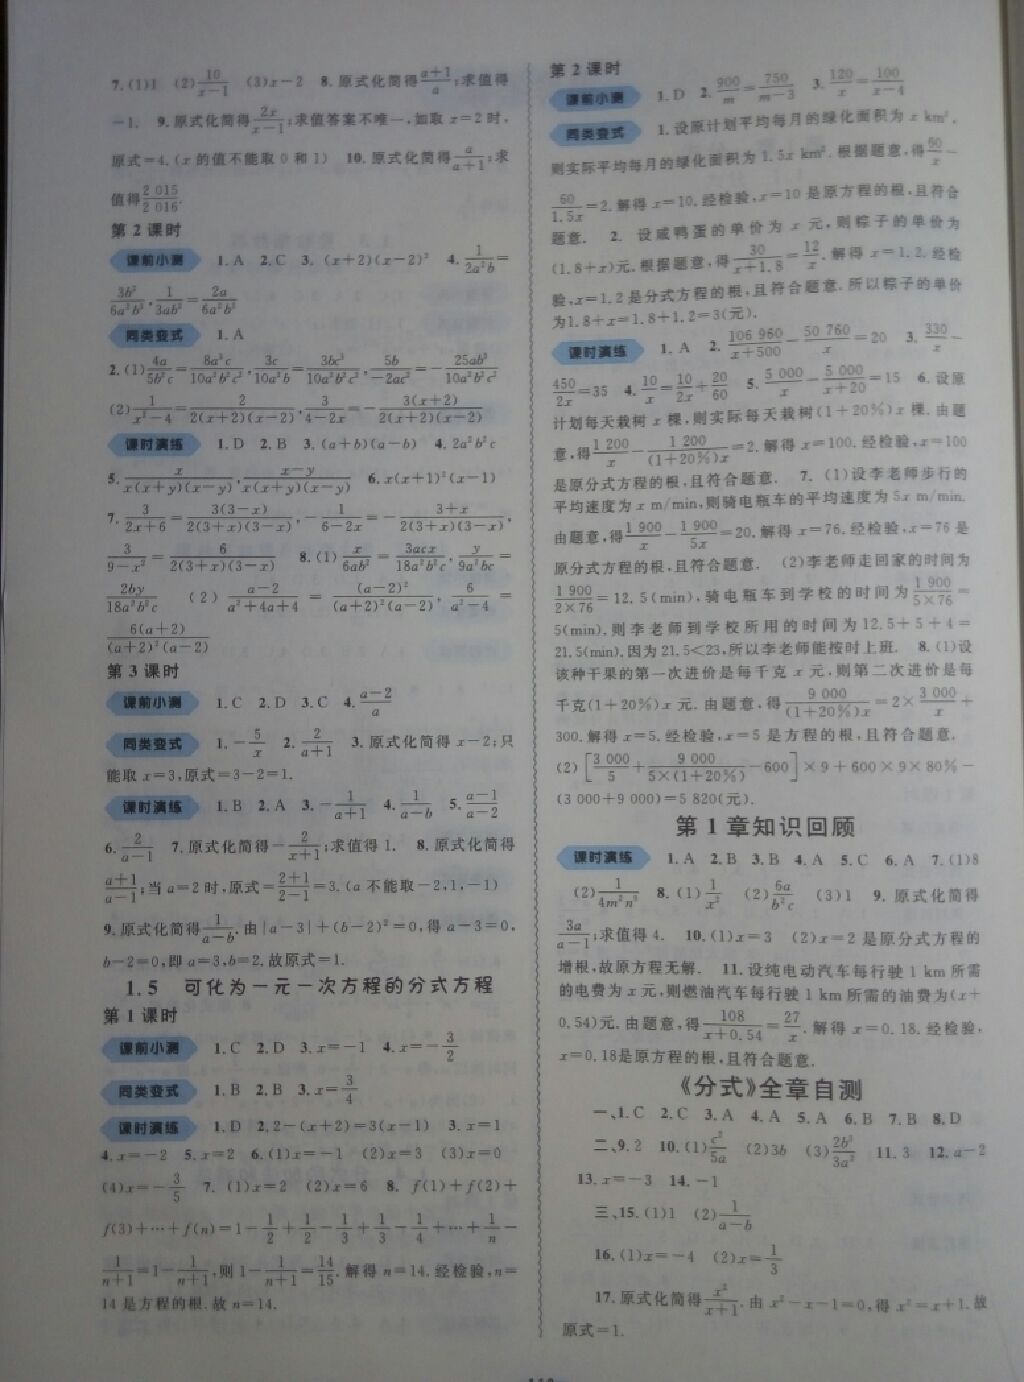 7.(1)1 (2)10/(x-1) (3)x-2 8.原式化简得(a+1)/a;求值得
-1. 9.原式化简得2x/(x-1);求值答案不唯一,如取x=2时,
原式=4.(x的值不能取0和1) 10.原式化简得a/(a+1);求
值得2 015/2 016.
第2课时
课前小测 1.A 2.C 3.(x+2)(x-2)² 4.1/(2a²b)=
3b²/(6a²b³),1/(3ab²)=2a/(6a²b³)
同类变式 1.A
2.(1)4a/(5b²c)=8a³c/(10a²b²c²),3c/(10a²b)=3bc³/(10a²b²c²),5b/(-2ac²)=-25ab³/(10a²b²c²)
(2)1/(x²-4)=2/(2(x+2)(x-2)),3/(4-2x)=-3(x+2)/(2(x+2)(x-2))
课时演练 1.D 2.B 3.(a+b)(a-b) 4.2a²b²c
5.x/(x(x+y)(x-y)),(x-y)/(x(x+y)(x-y)) 6.x(x+1)²(x-1)
7.3/(2x+6)=3(3-x)/(2(3+x)(3-x)),-1/(6-2x)=-(3+x)/(2(3+x)(3-x)),
3/(9-x²)=6/(2(3+x)(3-x)) 8.(1)x/(6ab²)=3acx/(18a²b²c),y/(9a²bc)=
2by/(18a²b²c) (2)(a-2)/(a²+4a+4)=(a-2)²/((a+2)²(a-2)),6/(a²-4)=
6(a+2)/((a+2)²(a-2))
第3课时
课前小测 1.C 2.D 3.C 4.(a-2)/a
同类变式 1.-5/x 2.2/(a+1) 3.原式化简得x-2;只
能取x=3,原式=3-2=1.
课时演练 1.B 2.A 3.-1/(a+1) 4.1/(a-b) 5.(a-1)/(a-2)
6.2/(a-1) 7.原式化简得-2/(x+1);求值得1. 8.原式化简得
(a+1)/(a-1);当a=2时,原式=(2+1)/(2-1)=3.(a不能取-2,1,-1)
9.原式化简得1/(a-b).由|a-3|+(b-2)²=0,得a-3=0,
b-2=0,即a=3,b=2.故原式=1.
1.5 可化为一元一次方程的分式方程
第1课时
课前小测 1.C 2.D 3.x=-1 4.x=-3/2
同类变式 1.B 2.B 3.x=3/4
课时演练 1.D 2.2-(x+2)=3(x-1) 3.x=1
4.x=-2 5.x=2 6.(1)x=-1 (2)x=3 (3)x=0
(4)x=-3/5 7.(1)x=2 (2)x=6 8.f(1)+f(2)+
f(3)+…+f(n)=1-1/2+1/2-1/3+1/3-1/4+…+1/n-
1/(n+1)=1-1/(n+1),则1-1/(n+1)=14/15.解得n=14.经检验,n=
14是方程的根.故n=14.
第2课时
课前小测 1.D 2.900/m=750/(m-3) 3.120/x=100/(x-4)
同类变式 1.设原计划平均每月的绿化面积为x km²,
则实际平均每月的绿化面积为1.5x km².根据题意,得60/x-
60/1.5x=2.解得x=10.经检验,x=10是原方程的根,且符合
题意. 2.设咸鸭蛋的单价为x元,则粽子的单价为
(1.8+x)元.根据题意,得30/(x+1.8)=12/x.解得x=1.2.经检
验,x=1.2是分式方程的根,且符合题意.所以粽子的单价
为1.8+x=1.8+1.2=3(元).
课时演练 1.A 2.106 960/(x+500)-50 760/x=20 3.330/x-
450/2x=35 4.10/x=10/2x+20/60 5.5 000/x-5 000/(x+20)=15 6.设原
计划每天栽树x棵,则实际每天栽树(1+20%)x棵.由题
意,得1 200/x-1 200/((1+20%)x)=2.解得x=100.经检验,x=100
是原分式方程的根,且符合题意. 7.(1)设李老师步行的
平均速度为x m/min,则骑电瓶车的平均速度为5x m/min.
由题意,得1 900/x-1 900/5x=20.解得x=76.经检验,x=76是
原分式方程的根,且符合题意. (2)李老师走回家的时间为
1 900/(2×76)=12.5(min),骑电瓶车到学校的时间为1 900/(5×76)=
5(min),则李老师到学校所用的时间为12.5+5+4=
21.5(min).因为21.5<23,所以李老师能按时上班. 8.(1)设
该种干果的第一次进价是每千克x元,则第二次进价是每
千克(1+20%)x元.由题意,得9 000/((1+20%)x)=2×3 000/x+
300.解得x=5.经检验,x=5是方程的根,且符合题意.
(2)[3 000/5+9 000/(5×(1+20%))-600]×9+600×9×80%-
(3 000+9 000)=5 820(元).
第1章知识回顾
课时演练 1.A 2.B 3.B 4.A 5.C 6.A 7.(1)8
(2)1/(4m²n³) 8.(1)1/x² (2)6a/(b²c) (3)1 9.原式化简得
3a/(a-1);求值得4. 10.(1)x=3 (2)x=2是原分式方程的
增根,故原方程无解. 11.设纯电动汽车每行驶1 km所需
的电费为x元,则燃油汽车每行驶1 km所需的油费为(x+
0.54)元.由题意,得108/(x+0.54)=27/x.解得x=0.18.经检验,
x=0.18是原方程的根,且符合题意.
《分式》全章自测
一、1.C 2.C 3.A 4.A 5.A 6.B 7.B 8.D
二、9.2 10.(1)c²/5a (2)3b (3)2b³/3a² 11.3 12.a-2
13.x=-3 14.-1
三、15.(1)1 (2)1/(a-b)
16.(1)x=-4 (2)x=1/3
17.原式化简得x²/(x+1).由x²-x-1=0,得x²=x+1.故
原式=1.